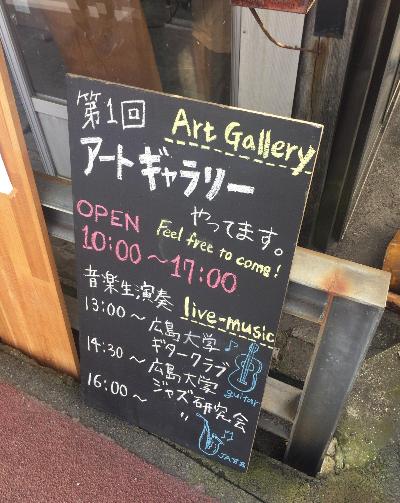 第1回 Art Gallery
アートギャラリー
やってます。
OPEN Feel free to come!
10:00～17:00
音楽生演奏 live-music
13:00～広島大学
ギタークラブ
guitar
14:30～広島大学
ジャズ研究会
16:00～ 〃
JAZZ